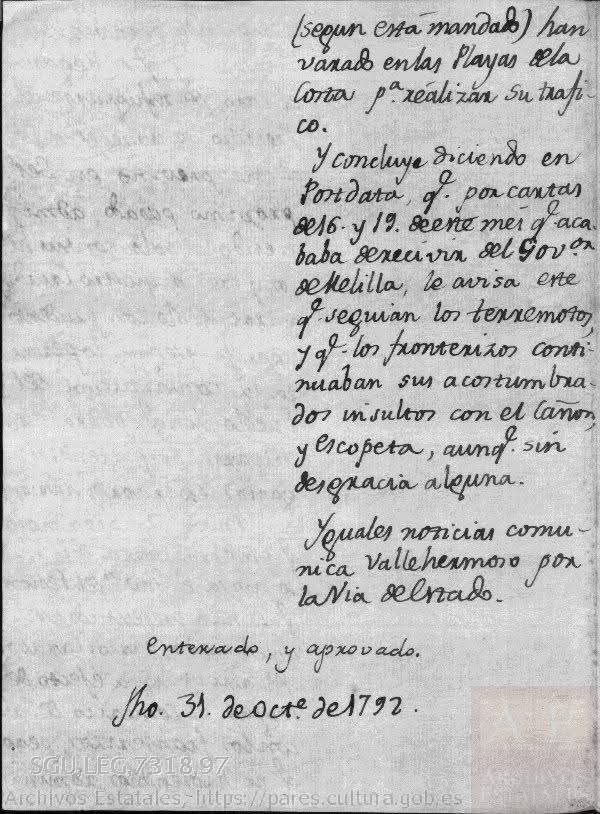 (segun está mandado) han
varado en las Playas de la
Costa pª. realizar su trafi-
co.
Y concluye diciendo en
Postdata, qe. por cartas
de 16. y 19. de este mes qe. aca-
baba de recivir del Govor.
de Melilla, le avisa este
qe. seguian los terremotos,
y qe. los fronterizos conti-
nuaban sus acostumbra-
dos insultos con el Cañon,
y escopeta, aunqe. sin
desgracia alguna.
Yguales noticias comu-
nica Vallehermoso por
la Via de Estado.
enterado, y aprovado.
fho. 31. de Octe. de 1792.
SGU,LEG,7318,97
Archivos Estatales, https://pares.cultura.gob.es